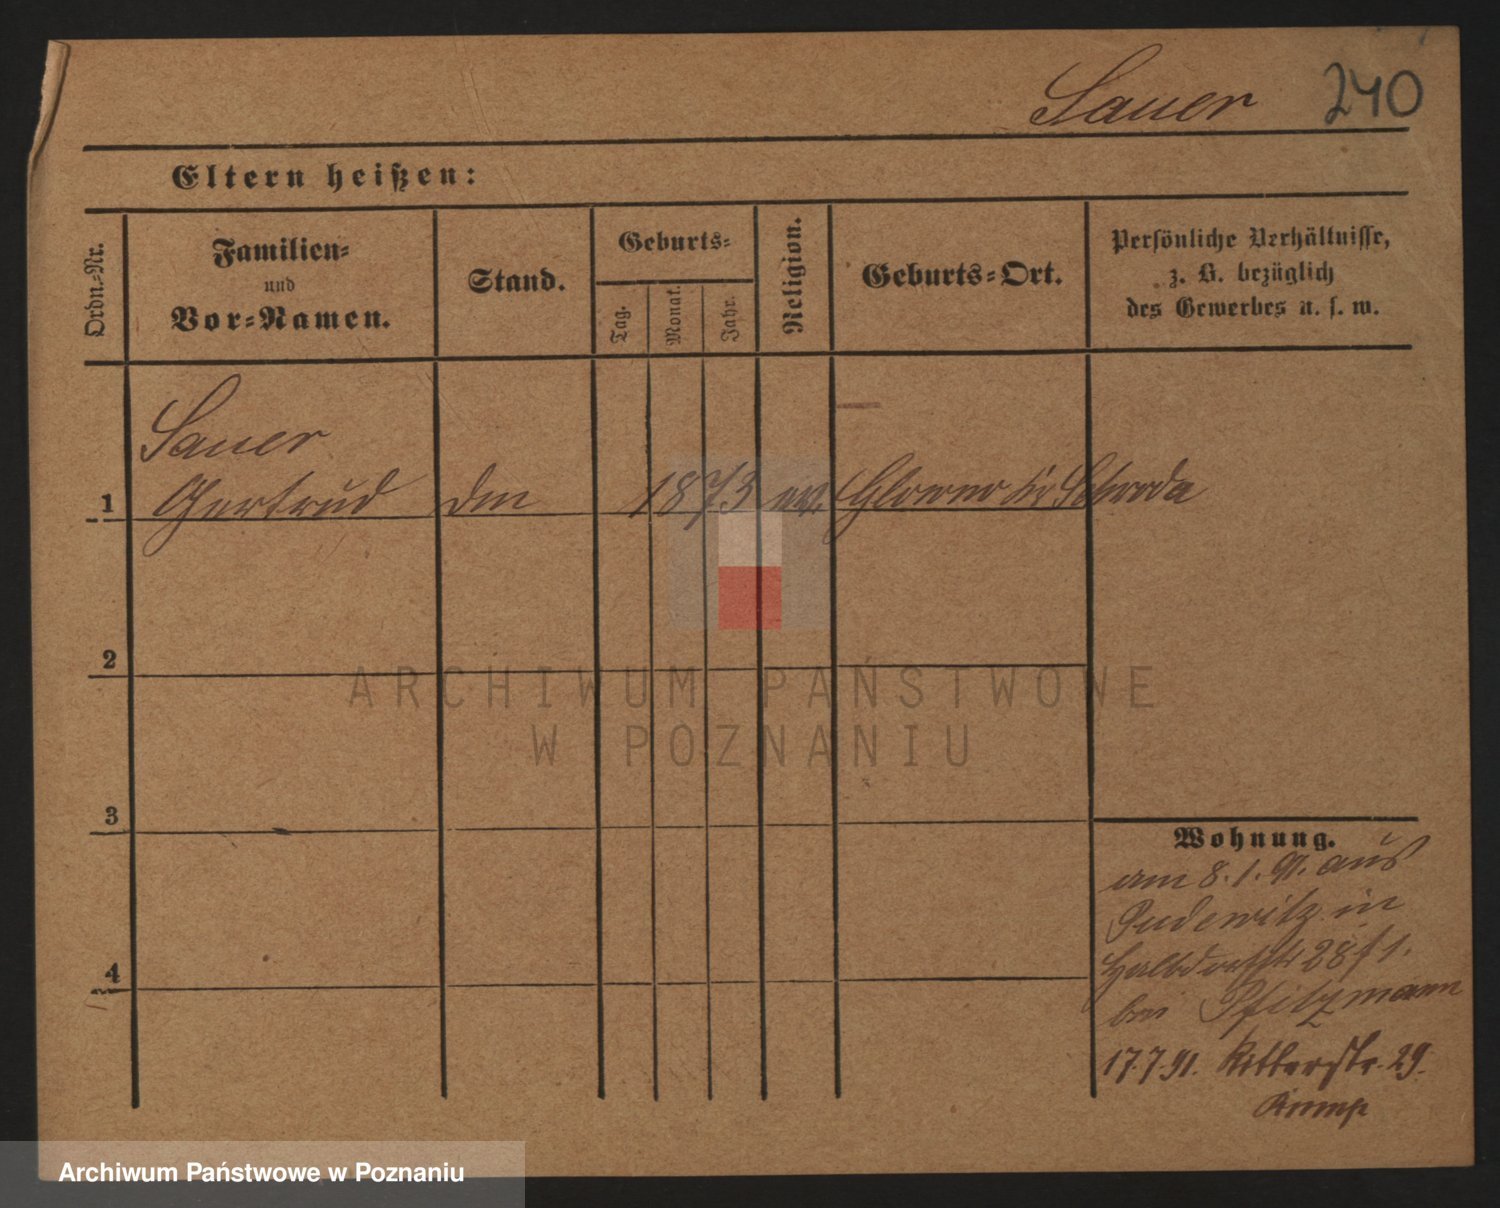 Sauer 240
Eltern heißen:
Ordn.-Nr.
Familien-
und
Vor-Namen.
Stand.
Geburts-
Tag.
Monat.
Jahr.
Religion.
Geburts-Ort.
Persönliche Verhältnisse,
z. B. bezüglich
des Gewerbes u. s. w.
Sauer
1 Gertrud 1873 ev. Schroda
2
3
4
Wohnung.
am 8.1.91. aus
Pudewitz in
Halbdorfstr 28
bei Pfitzmann
17.7.91. Ritterstr. 29.
ARCHIWUM PAŃSTWOWE
W POZNANIU
Archiwum Państwowe w Poznaniu